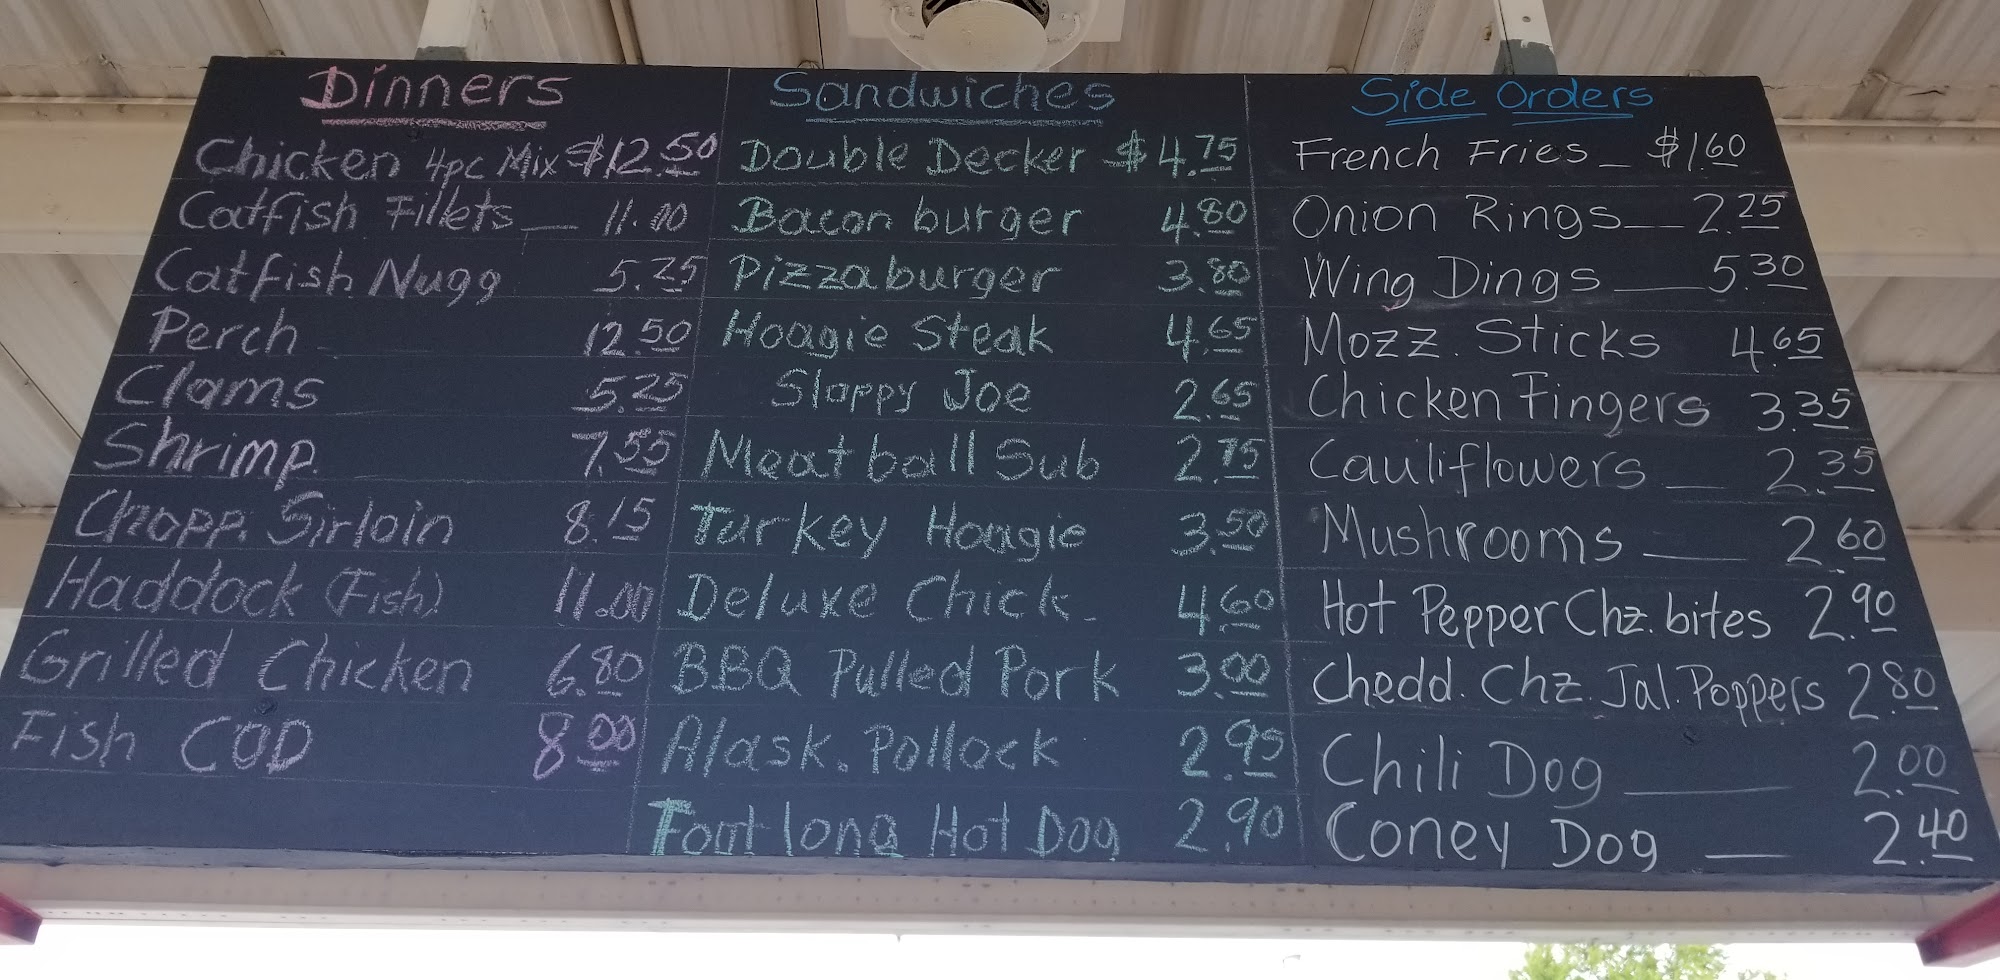 Dinners
Chicken 4pc Mix $12.50
Catfish Fillets __ 11.00
Catfish Nugg 5.25
Perch 12.50
Clams 5.25
Shrimp 7.55
Chopp. Sirloin 8.15
Haddock (Fish) 11.00
Grilled Chicken 6.80
Fish COD 8.00
Sandwiches
Double Decker $4.75
Bacon burger 4.80
Pizzaburger 3.80
Hoagie Steak 4.65
Sloppy Joe 2.65
Meatball Sub 2.75
Turkey Hoagie 3.50
Deluxe Chick. 4.60
BBQ Pulled Pork 3.00
Alask. Pollock 2.95
Foot long Hot Dog 2.90
Side Orders
French Fries _ $1.60
Onion Rings __ 2.25
Wing Dings __ 5.30
Mozz. Sticks 4.65
Chicken Fingers 3.35
Cauliflowers __ 2.35
Mushrooms __ 2.60
Hot Pepper Chz. bites 2.90
Chedd. Chz. Jal. Poppers 2.80
Chili Dog __ 2.00
Coney Dog __ 2.40